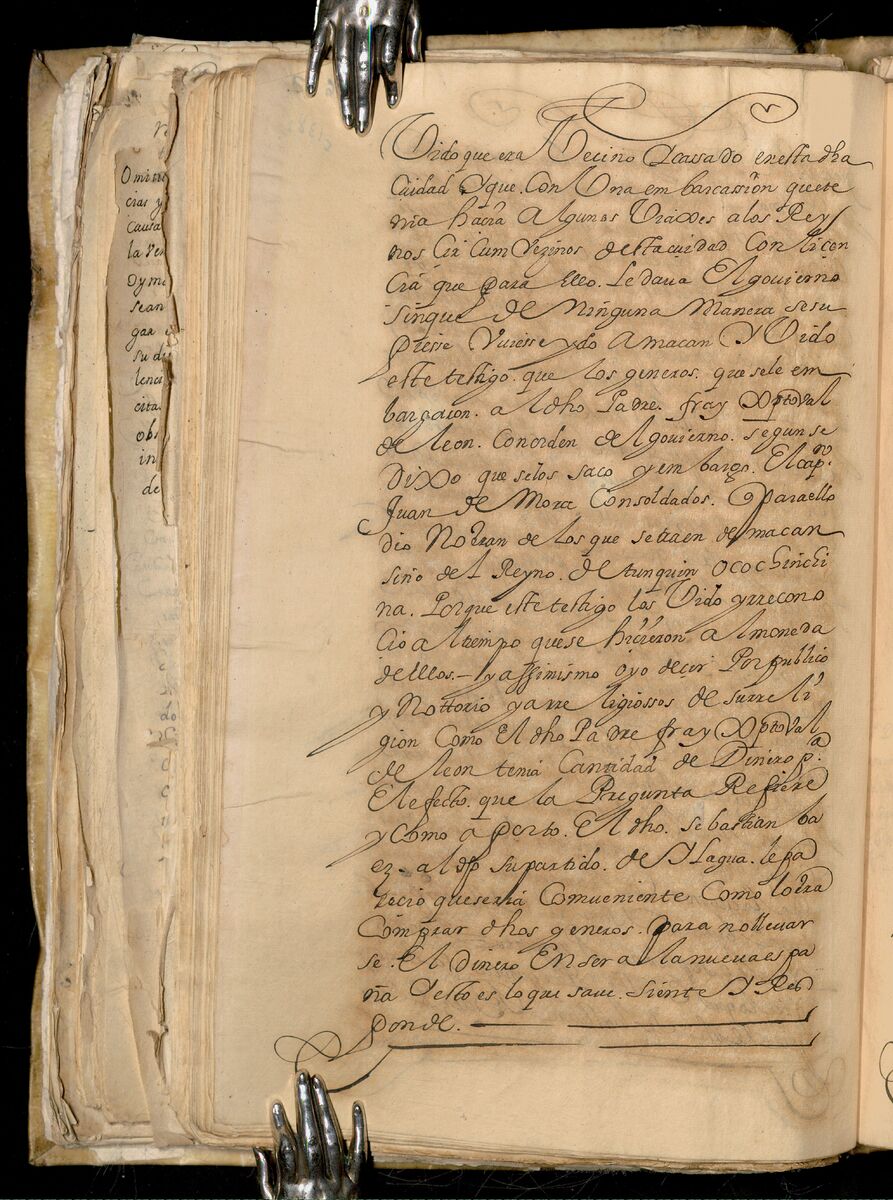 Omitie
cias y
Causa
la ver
Dyma
sean
gar e
su di
lenci
cita
obs
in
de
Vido que era Vecino Y cassado en esta dha
Ciudad Y que. Con Una em barcassion que te
nia hacia Algunos Viaxes a los Rey
nos Cir Cum Vezinos desta ciudad Con licen
cia que para ello. Le dava El govierno
sinque de Ninguna Manera se su
piesse Uviesse ydo A macan Y Vido
este testigo. que los generos. que se le em
bargaron. al dho Padre. fray Xptoval
de leon. Con orden del govierno. segun se
Dixo que se los saco y embargo. El capn.
Juan de Mora Consoldados. Que para ello
dio No eran de los que se traen de macan
sino del Reyno. de tunquin o cochinchi
na. Porque este testigo los Vido y rrecono
cio al tiempo que se hicieron almoneda
de ellos.- y assimismo oyo decir Por publico
y Nottorio y a rre ligiossos de su rreli
gion Como El dho Padre fray Xptoval
de leon tenia Cantidad de Dinero pa.
El efecto. que la Pregunta Refiere
y como aporto. El dho. sebastian ba
ez. al dho su partido. de Y Lagua. le pa
recio que seria Comueniente Como lo era
Comprar dhos generos. para no llevar
se. El dinero En ser a la nueva espa
ña Y esto es lo que save. siente Y Res
ponde.